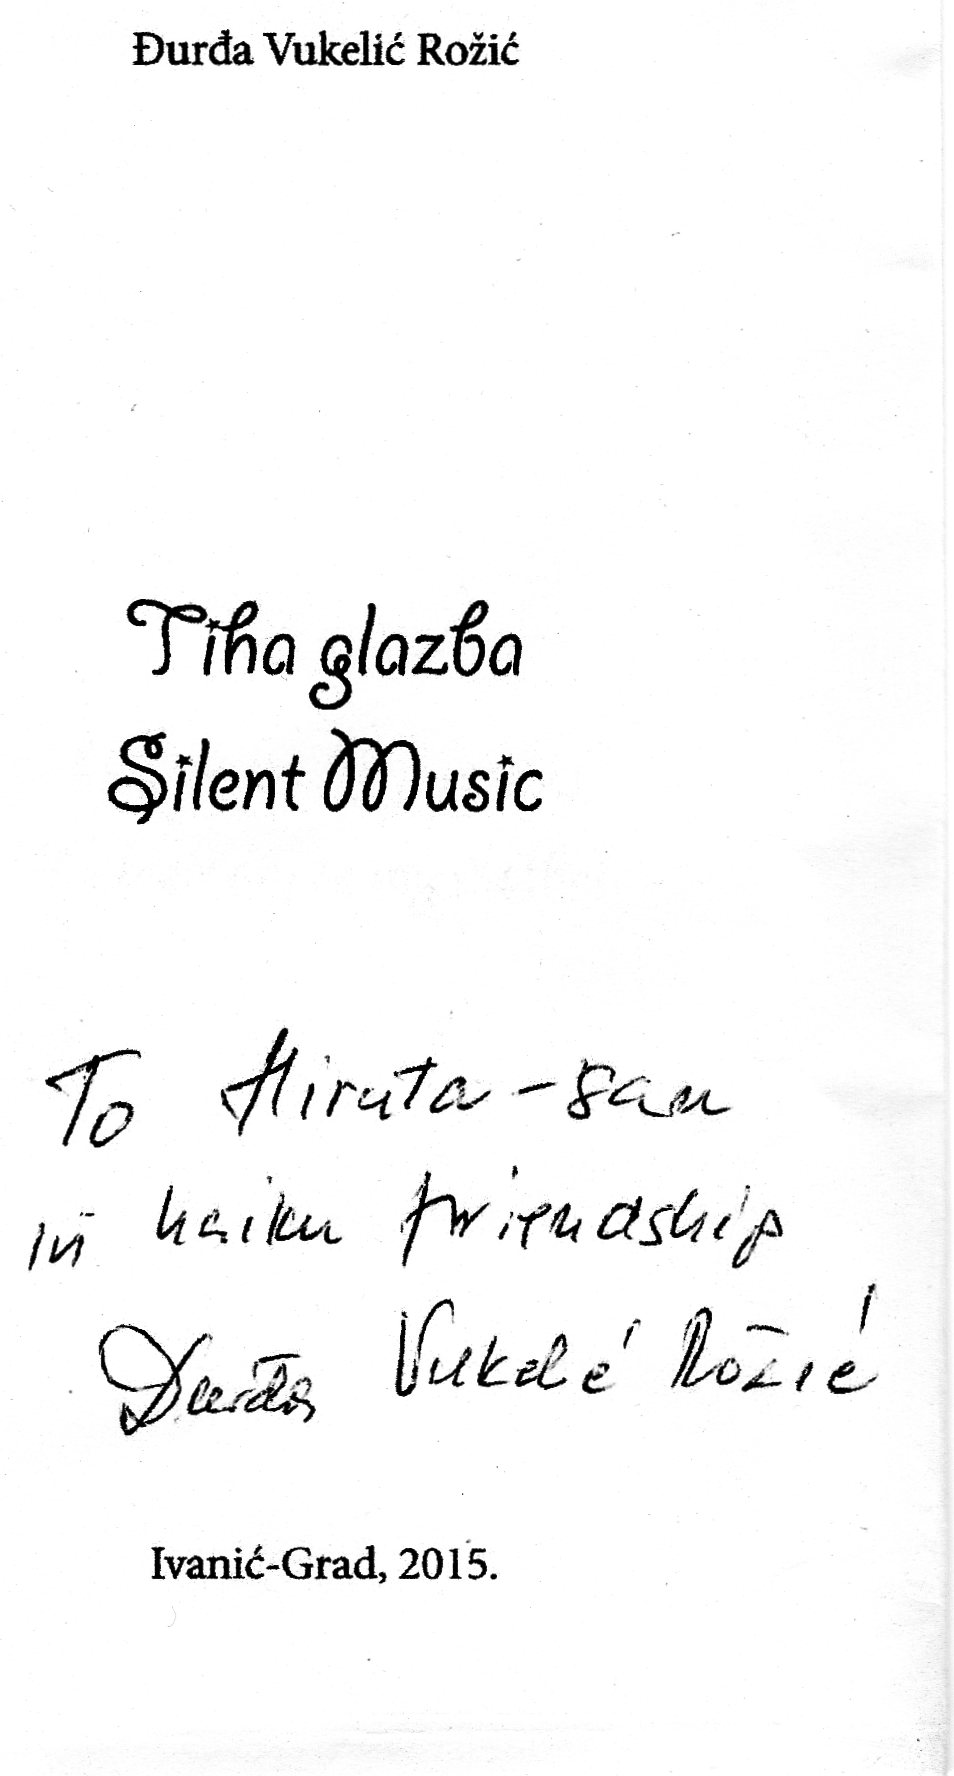 Đurđa Vukelić Rožić
Tiha glazba
Silent Music
To Hiruta-san
in haiku friendship
Đurđa Vukelić Rožić
Ivanić-Grad, 2015.